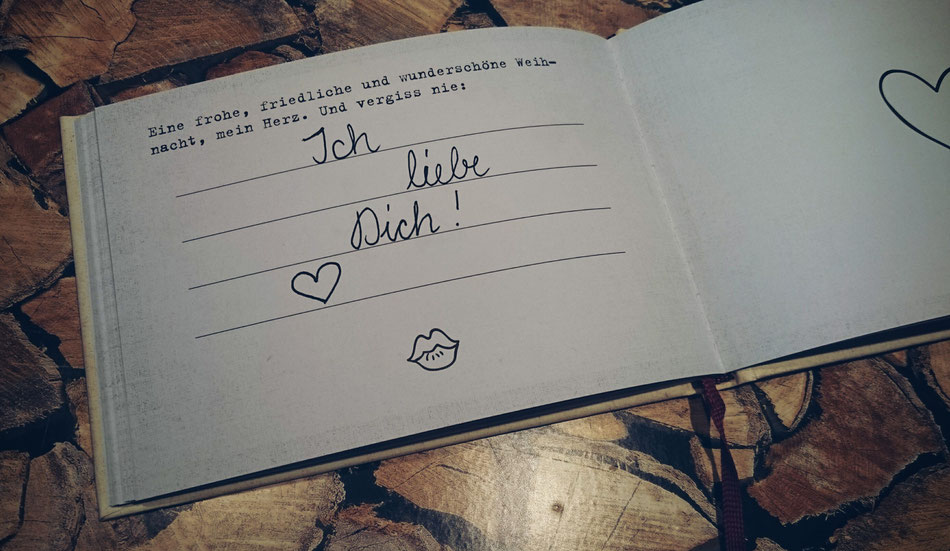 Eine frohe, friedliche und wunderschöne Weih-
nacht, mein Herz. Und vergiss nie:
Ich
liebe
Dich!